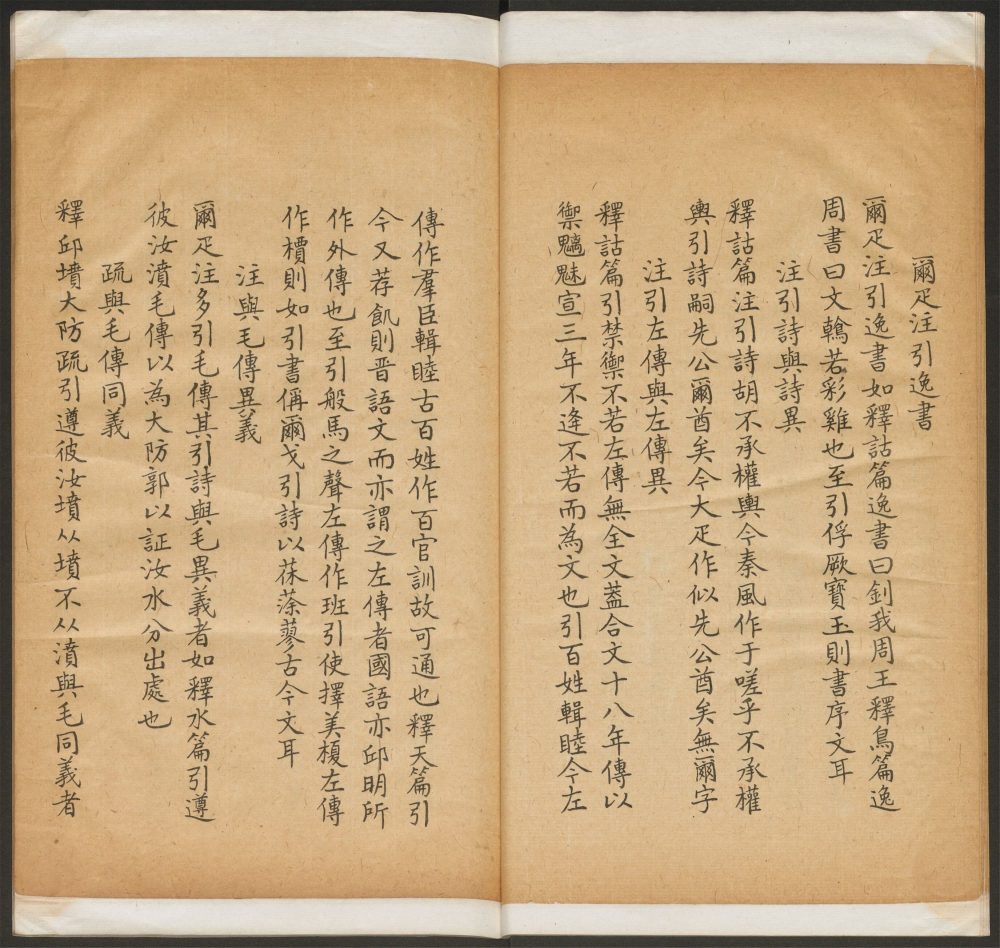 爾疋注引逸書
爾疋注引逸書如釋詁篇逸書曰釗我周王釋鳥篇逸
周書曰文鶾若彩雞也至引俘厥寶玉則書序文耳
注引詩與詩異
釋詁篇注引詩胡不承權輿今秦風作于嗟乎不承權
輿引詩嗣先公爾酋矣今大疋作似先公酋矣無爾字
注引左傳與左傳異
釋詁篇引禁禦不若左傳無全文蓋合文十八年傳以
禦魑魅宣三年不逢不若而為文也引百姓輯睦今左
傳作羣臣輯睦古百姓作百官訓故可通也釋天篇引
今又荐飢則晋語文而亦謂之左傳者國語亦邱明所
作外傳也至引般馬之聲左傳作班引使擇美榎左傳
作檟則如引書偁爾戈引詩以茠蒤蓼古今文耳
注與毛傳異義
爾疋注多引毛傳其引詩與毛異義者如釋水篇引遵
彼汝濆毛傳以為大防郭以証汝水分出處也
疏與毛傳同義
釋邱墳大防疏引遵彼汝墳从墳不从濆與毛同義者